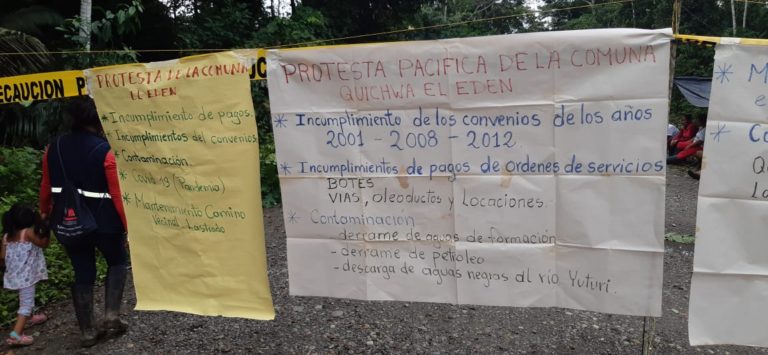 PRECAUCION P
PROTESTA DE LA COMUNA
EL EDEN
* Incumplimiento de pagos
* Incumplimientos del convenios
* Contaminación
* Covid 19 (Pandemia)
* Mantenimiento Camino
Vecinal Lastrado
PROTESTA PACIFICA DE LA COMUNA
QUICHWA EL EDEN
* Incumplimiento de los convenios de los años
2001 - 2008 - 2012
* Incumplimientos de pagos de ordenes de servicios
BOTES
VIAS, oleoductos y Locaciones.
* Contaminacion
- derrame de aguas de formación
- derrame de petroleo
- descarga de aguas negras al río Yuturi.
* M
e
* Co
Q
La